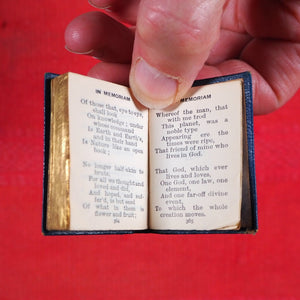 IN MEMORIAM
Of those that, eye to eye,
shall look
On knowledge; under
whose command
Is Earth and Earth's,
and in their hand
Is Nature like an open
book;
No longer half-akin to
brute,
For all we thought and
loved and did,
And hoped, and suf-
fer'd, is but seed
Of what in them is
flower and fruit;
364
MEMORIAM
Whereof the man, that
with me trod
This planet, was a
noble type
Appearing ere the
times were ripe,
That friend of mine who
lives in God.
That God, which ever
lives and loves,
One God, one law, one
element,
And one far-off divine
event,
To which the whole
creation moves.
365